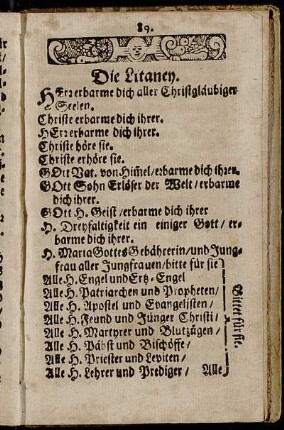 89.
Die Litaney.
HErr erbarme dich aller Christgläubigen
Seelen.
Christe erbarme dich ihrer.
HErr erbarme dich ihrer.
Christe höre sie.
Christe erhöre sie.
GOtt Vat. von Him̃el/erbarme dich ihrer.
GOtt Sohn Erlöser der Welt/erbarme
dich ihrer.
GOtt H. Geist/erbarme dich ihrer
H. Dreyfaltigkeit ein einiger Gott/er-
barme dich ihrer.
H. Maria Gottes Gebährerin/und Jung-
frau aller Jungfrauen/bitte für sie
Alle H. Engel und Ertz-Engel
Alle H. Patriarchen und Propheten/
Alle H. Apostel und Evangelisten/
Alle H. Jünger Christi/
Alle H. Martyrer und Blutzügen/
Alle H. Päbst und Bischöffe/
Alle H. Priester und Leviten/
Alle H. Lehrer und Prediger/
Bittet für sie.
Alle